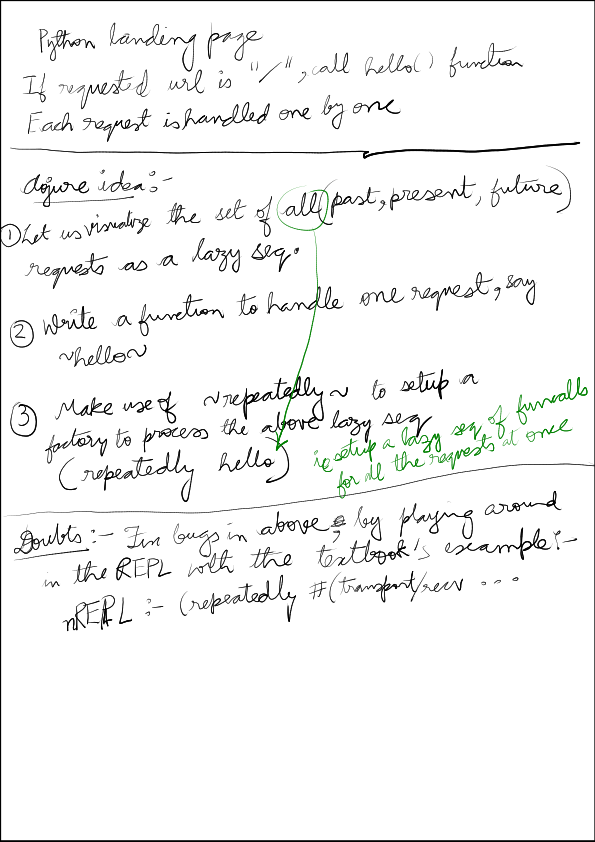 Python landing page
If requested url is "/", call hello() function
Each request is handled one by one
Clojure idea:-
① Let us visualize the set of all (past, present, future)
requests as a lazy seq.
② Write a function to handle one request, say
~hello~
③ Make use of ~repeatedly~ to setup a
factory to process the above lazy seq
(repeatedly hello)
ie setup a lazy seq of funcalls
for all the requests at once
Doubts :- Fix bugs in above, by playing around
in the REPL with the textbook's example:-
nREPL :- (repeatedly #(transport/recv ...